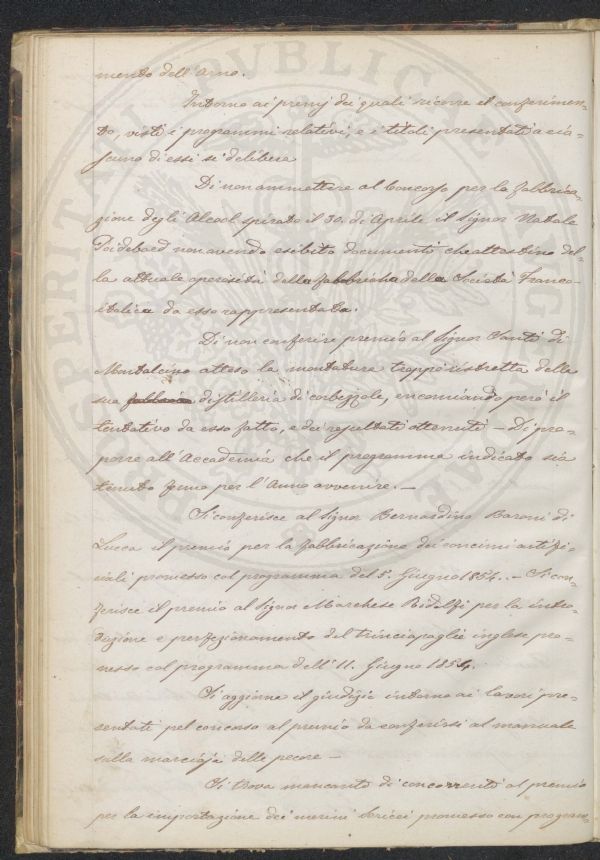 mento dell'Arno.
Intorno ai premj dei quali ricorre il conferimen=
to, visti i programmi relativi, e i titoli presentati a cia=
scuno di essi si delibera
Di non ammettere al Concorso per la fabbrica=
zione degli Alcool spirato il 30. di Aprile il Signor Natale
Poidebard non avendo esibito documenti che attestino del=
la attuale operosità della fabbricha della Società Franco=
italica da esso rappresentata.
Di non conferire premio al Signor Santi di
Montalcino atteso la montatura troppo ristretta della
sua distilleria di corbezzole, encomiando però il
tentativo da esso fatto, e dei resultati ottenuti – Di pro=
porre all'Accademia che il programma indicato sia
tenuto fermo per l'Anno avvenire. –
Si conferisce al Signor Bernardino Baroni di
Lucca il premio per la fabbricazione dei concimi artifi=
ciali promesso col programma del 5. Giugno 1854. – Si con=
ferisce il premio al Signor Marchese Ridolfi per la intro=
duzione e perfezionamento del trinciapaglie inglese pro=
messo col programma dell'11. Giugno 1854.
Si aggiorna il giudizio intorno ai lavori pre=
sentati pel concorso al premio da conferirsi al manuale
sulla marciaja delle pecore –
Si trova mancante di concorrenti al premio
per la importazione dei merini promesso con program=
PROSPERITATI PUBLICAE AUGENDAE